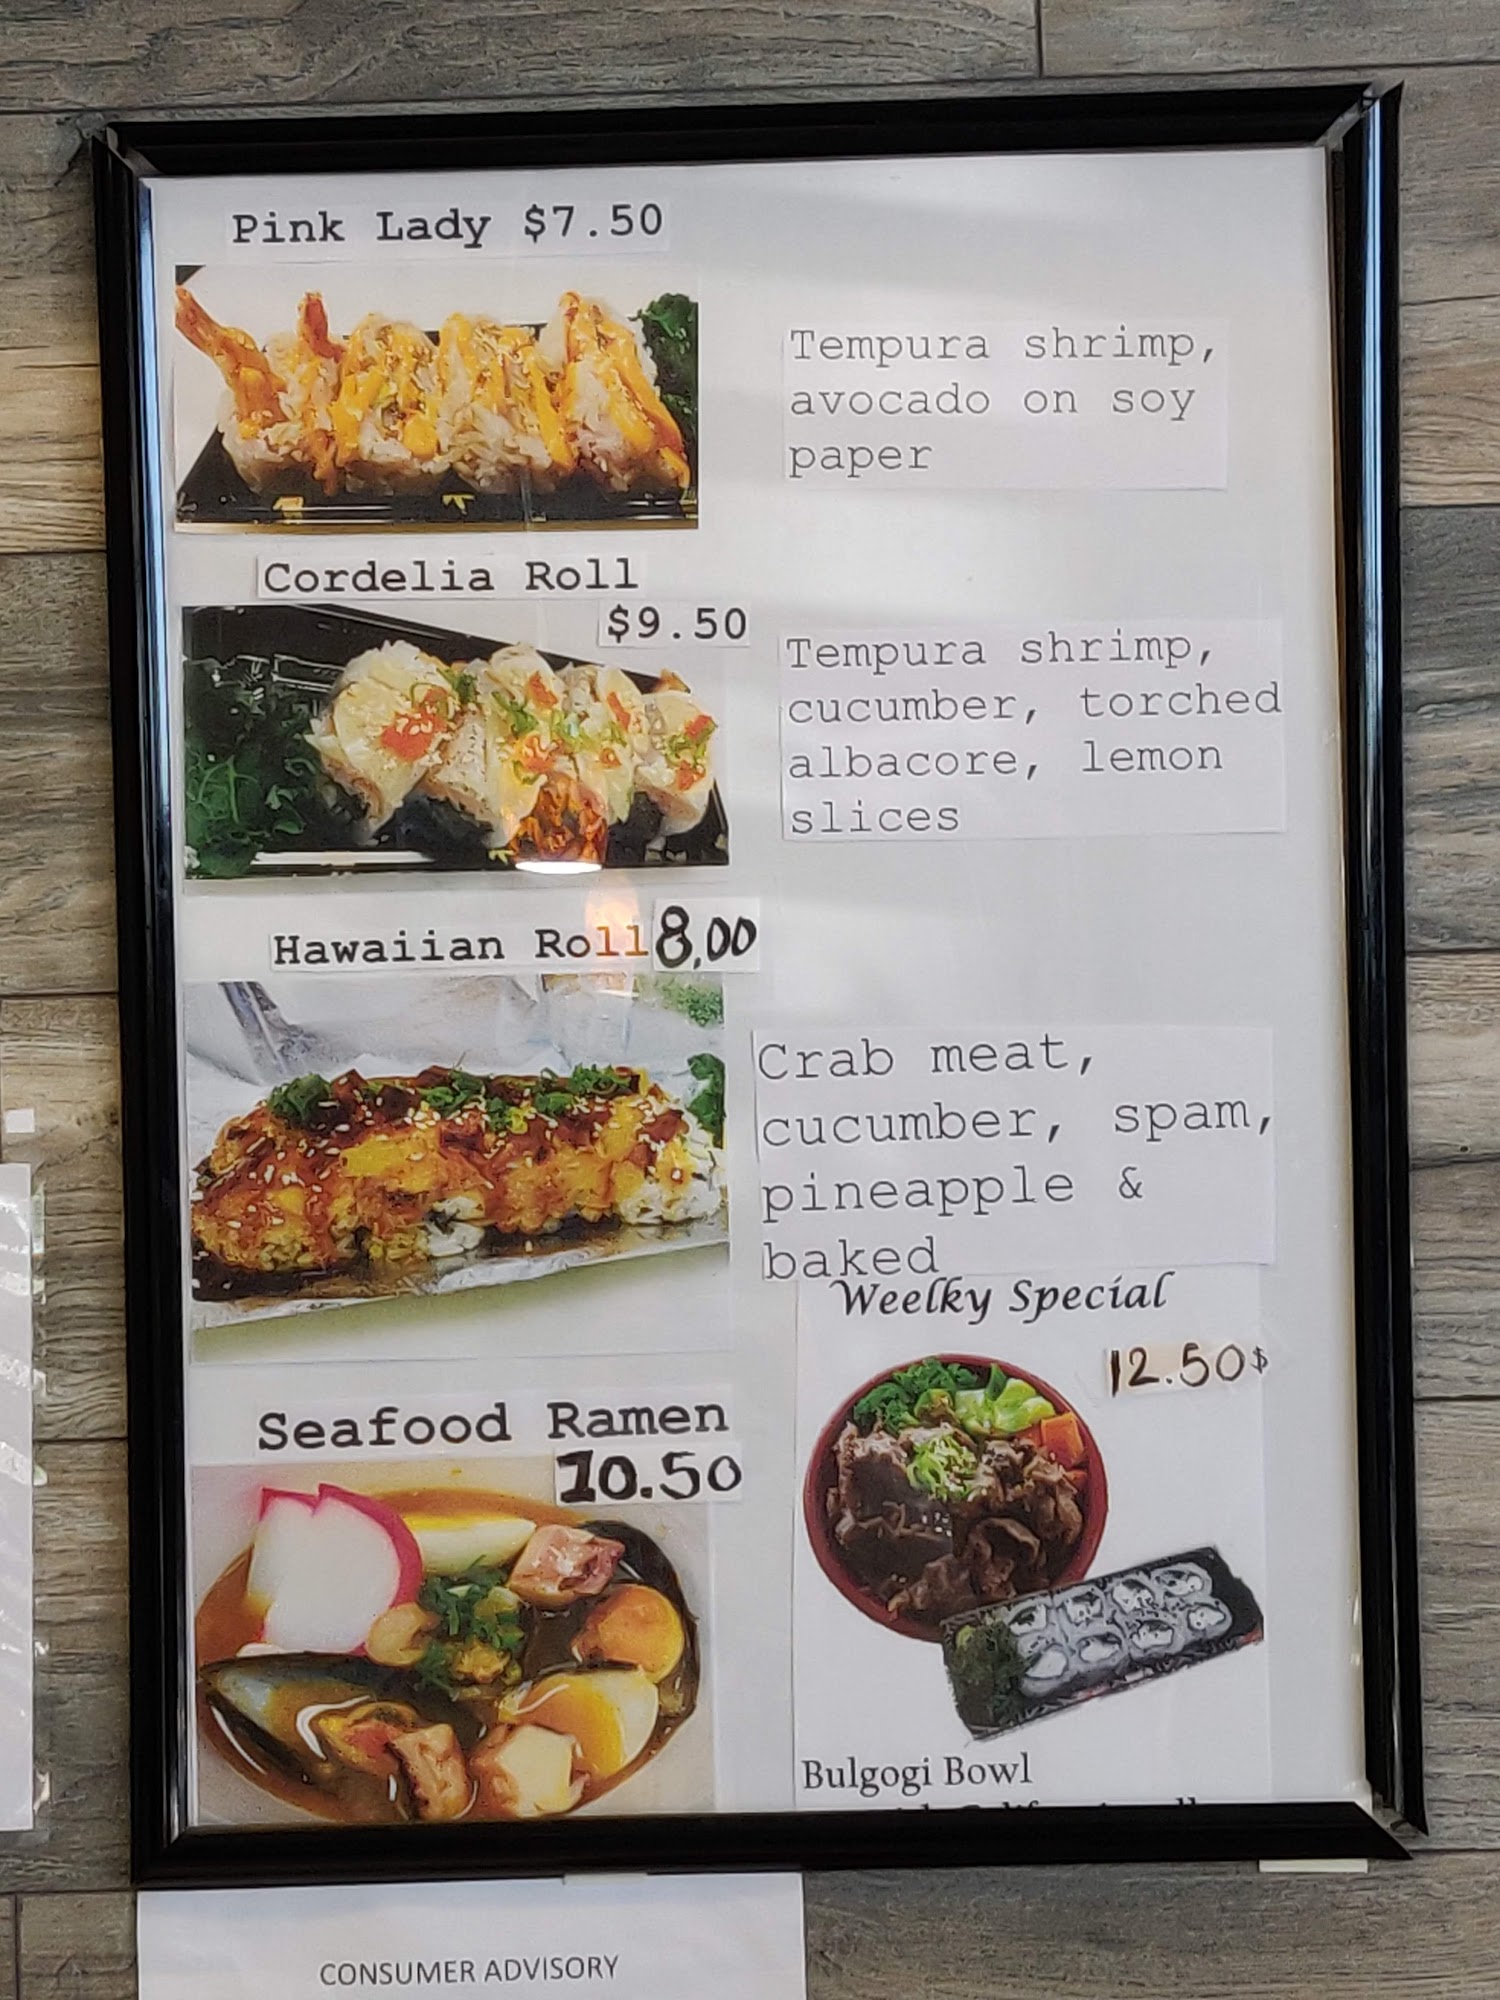 Pink Lady $7.50
Tempura shrimp,
avocado on soy
paper
Cordelia Roll
$9.50
Tempura shrimp,
cucumber, torched
albacore, lemon
slices
Hawaiian Roll 8.00
Crab meat,
cucumber, spam,
pineapple &
baked
Seafood Ramen
10.50
Weelky Special
12.50$
Bulgogi Bowl
CONSUMER ADVISORY